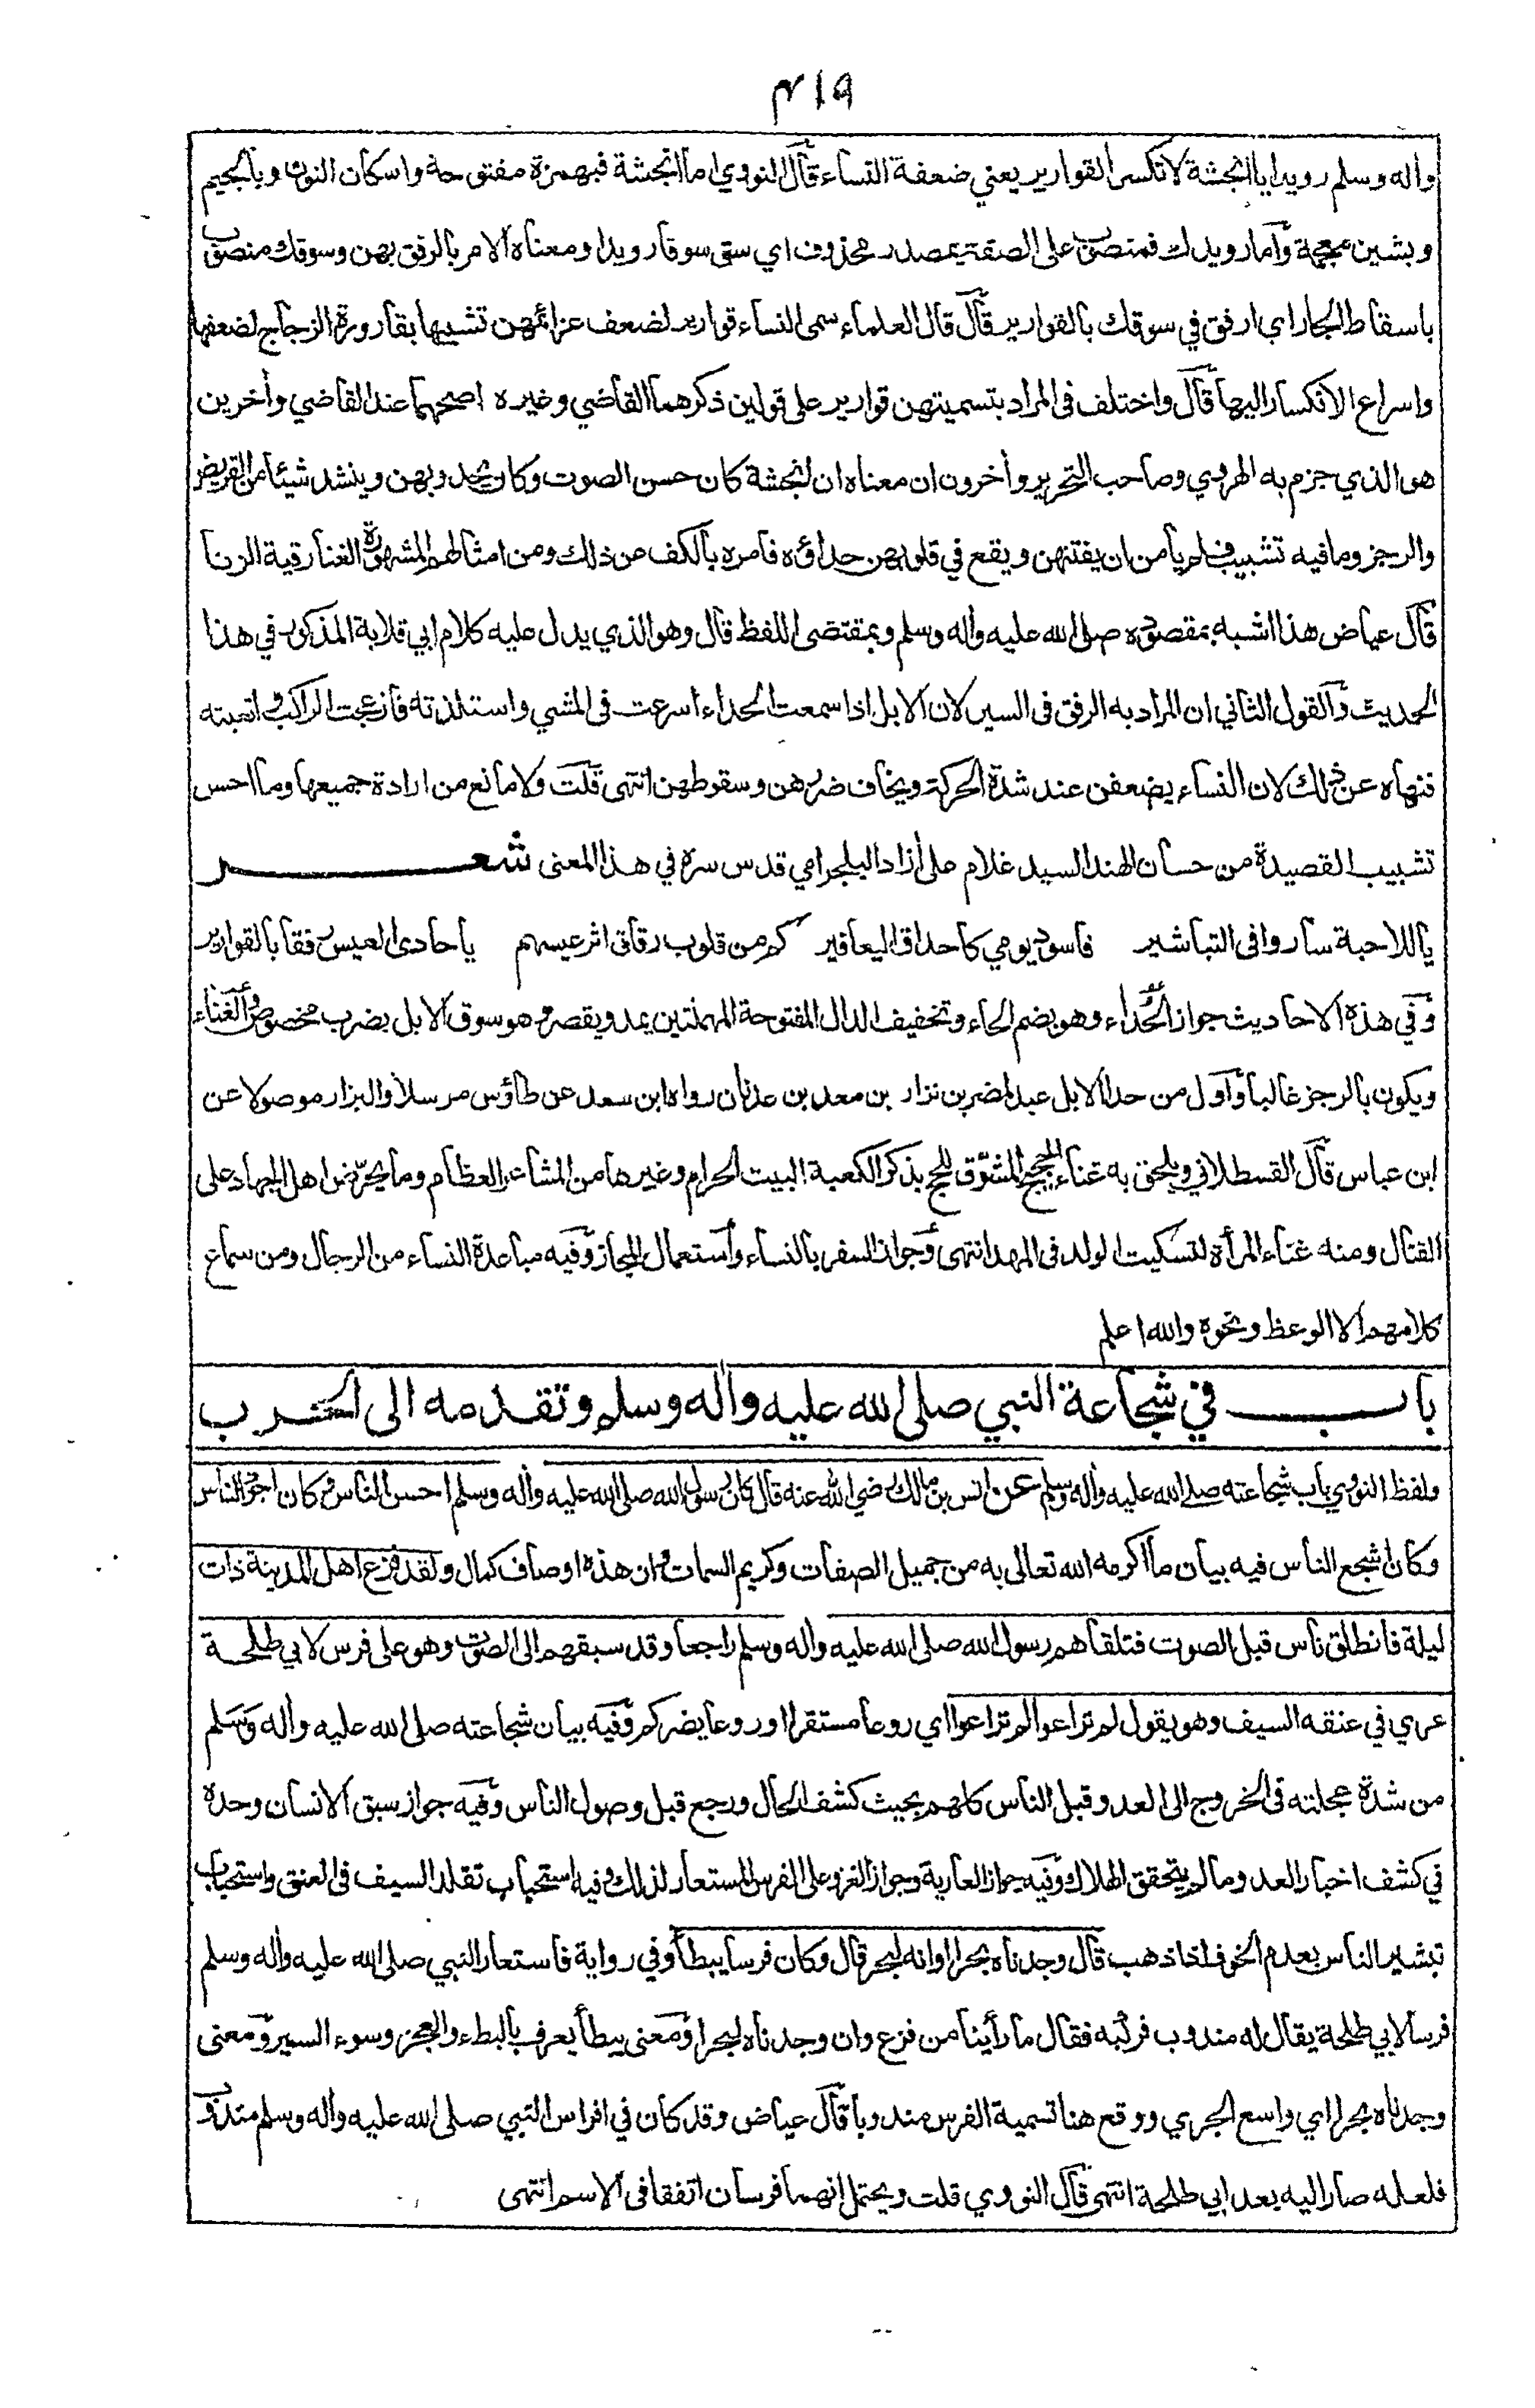 ۴۱۹
واٰله وسلم رويدا يا انجشة لا تكسر القوارير يعني ضعفة النساء قال النووي اما انجشة فبهمزة مفتوحة واسكان النون وبالجيم
وبشين معجمة وأما رويدك فمنصوب على الصفة بمصدر محذوف اي سق سوقا رويدا ومعناه الامر بالرفق بهن وسوقك منصوب
باسقاط الجار اي ارفق في سوقك بالقوارير قال قال العلماء سمى النساء قوارير لضعف عزائمهن تشبيها بقارورة الزجاج لضعفها
واسراع الانكسار اليها قال واختلف في المراد بتسميتهن قوارير على قولين ذكرهما القاضي وغيره اصحهما عند القاضي وأخرين
هو الذي جزم به الهروي وصاحب التحرير وأخرون ان معناه ان انجشة كان حسن الصوت وكان يحدو بهن وينشد شيئا من القريض
والرجز وما فيه تشبيب فلم يأمن ان يفتنهن ويقع في قلوبهن حداؤه فامره بالكف عن ذلك ومن امثالهم المشهورة الغنا رقية الزنا
قال عياض هذا اشبه بمقصوده صلى الله عليه واٰله وسلم وبمقتضى اللفظ قال وهو الذي يدل عليه كلام ابي قلابة المذكور في هذا
الحديث والقول الثاني ان المراد به الرفق في السير لان الابل اذا سمعت الحداء اسرعت في المشي واستلذته فازعجت الراكب واتعبته
فنهاه عن ذلك لان النساء يضعفن عند شدة الحركة ويخاف ضررهن وسقوطهن انتهى قلت ولا مانع من ارادة جميعها وما احسن
تشبيب القصيدة من حسان الهند السيد غلام علي أزاد البلجرامي قدس سره في هذا المعنى شعر
يا للاحبة ساروا في التباشير فاسود يومي كاحداق اليعافير كم من قلوب رقاق اثر عيسهم يا حادي العيس رفقا بالقوارير
وفي هذه الاحاديث جواز الحُداء وهو بضم الحاء وتخفيف الدال المفتوحة المهملتين يمد ويقصر وهو سوق الابل بضرب مخصوص من الغناء
ويكون بالرجز غالبا وأول من حدا الابل عبد لمضر بن نزار بن معد بن عدنان رواه ابن سعد عن طاؤس مرسلا والبزار موصولا عن
ابن عباس قال القسطلاني ويلحق به غناء الحجيج المشوّق للحج بذكر الكعبة البيت الحرام وغيرها من المشاعر العظام وما يحرّض اهل الجهاد على
القتال ومنه غناء المرأة لتسكيت الولد في المهد انتهى وجواز السفر بالنساء واستعمال المجاز وفيه مباعدة النساء من الرجال ومن سماع
كلامهم الا الوعظ ونحوه والله اعلم
باب في شجاعة النبي صلى الله عليه واٰله وسلم وتقدمه الى الحرب
ولفظ النووي باب شجاعته صلى الله عليه واٰله وسلم عن انس بن مالك رضي الله عنه قال كان رسول الله صلى الله عليه واٰله وسلم احسن الناس وكان اجود الناس
وكان اشجع الناس فيه بيان ما اكرمه الله تعالى به من جميل الصفات وكريم السمات وان هذه اوصاف كمال ولقد فزع اهل المدينة ذات
ليلة فانطلق ناس قبل الصوت فتلقاهم رسول الله صلى الله عليه واٰله وسلم راجعا وقد سبقهم الى الصوت وهو على فرس لابي طلحة
عري في عنقه السيف وهو يقول لم تراعوا لم تراعوا اي روعا مستقرا او روعا يضركم وفيه بيان شجاعته صلى الله عليه واٰله وسلم
من شدة عجلته في الخروج الى العدو قبل الناس كلهم بحيث كشف الحال ورجع قبل وصول الناس وفيه جواز سبق الانسان وحده
في كشف اخبار العدو ما لم يتحقق الهلاك وفيه جواز العارية وجواز الغزو على الفرس المستعار لذلك وفيه استحباب تقلد السيف في العنق واستحباب
تبشير الناس بعدم الخوف اذا ذهب قال وجدناه بحرا او انه لبحر قال وكان فرسا يبطأ وفي رواية فاستعار النبي صلى الله عليه واٰله وسلم
فرسا لابي طلحة يقال له مندوب فركبه فقال ما رأينا من فزع وان وجدناه لبحرا ومعنى يبطأ يعرف بالبطء والعجز وسوء السير ومعنى
وجدناه بحرا اي واسع الجري ووقع هنا تسمية الفرس مندوبا قال عياض وقد كان في افراس النبي صلى الله عليه واٰله وسلم مندوب
فلعله صار اليه بعد ابي طلحة انتهى قال النووي قلت ويحتمل انهما فرسان اتفقا في الاسم انتهى